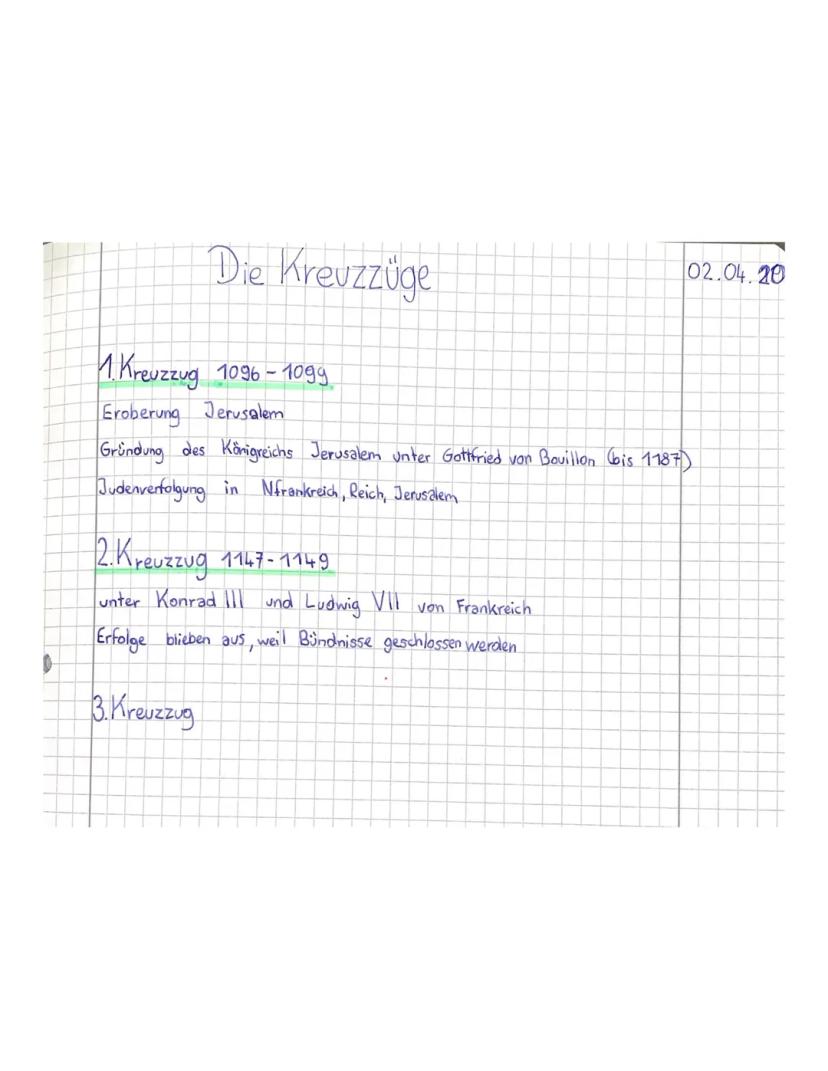 Die Kreuzzüge
02.04.20
1. Kreuzzug 1096 - 1099
Eroberung Jerusalem
Gründung des Königreichs Jerusalem unter Gottfried von Bouillon (bis 1187)
Judenverfolgung in Nfrankreich, Reich, Jerusalem
2. Kreuzzug 1147 - 1149
unter Konrad III und Ludwig VII von Frankreich
Erfolge blieben aus, weil Bündnisse geschlossen werden
3. Kreuzzug